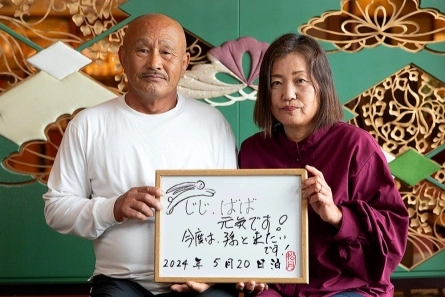 じじ、ばば
元気です!
今度は、孫と来たい
です!
2024年5月20日泊